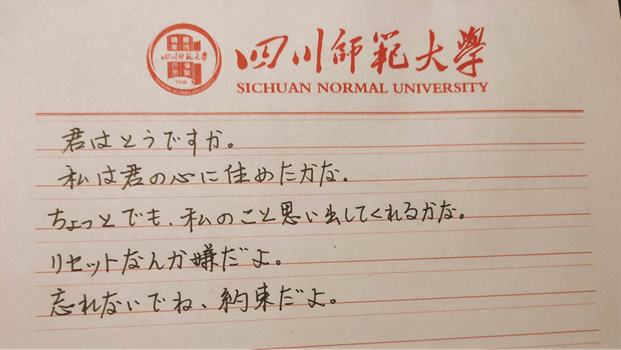 四川師範大學
SICHUAN NORMAL UNIVERSITY
君はとうですか。
私は君の心に住めたかな.
ちょっとでも、私のこと思い出してくれるかな。
リセットなんか嫌だよ。
忘れないでね、約束だよ。